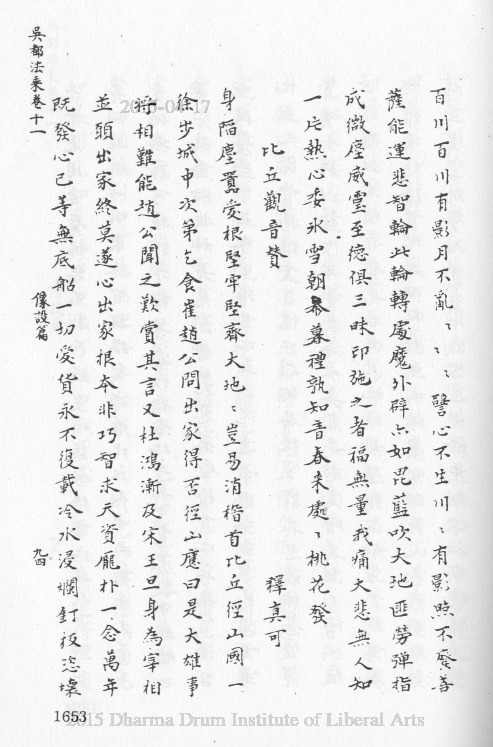 百川百川有影月不亂〻〻〻譬心不生川〻有影照不癈善
薩能運悲智輪此輪轉處魔外辟亦如毘藍吹大地匪勞彈指
成微塵威靈至德俱三昧印施之者福無量我痛大悲無人知
一片熱心委氷雪朝暮禮孰知音春来處〻桃花發
比丘觀音贊 釋真可
身陷塵嚣愛根堅牢堅齊大地〻豈易消稽首比丘徑山國一
徐步城中次第乞食崔趙公問出家得否徑山應曰是大雄事
將相難能趙公聞之歎賞其言又杜鴻漸及宋王旦身為宰相
並頭出家終莫遂心出家根本非巧智求天資龎朴一念萬年
既發心已等無底船一切愛貨永不復載冷水浸爛釘板恣壞
吳都法乗卷十一 像設篇 九四
1653
2015 Dharma Drum Institute of Liberal Arts